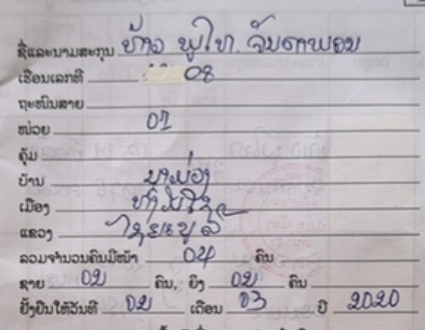 ຊື່ແລະນາມສະກຸນ ທ້າວ ພູໄທ ຈັນດາພອນ
ເຮືອນເລກທີ 08
ຖະໜົນສາຍ
ໜ່ວຍ 01
ຄຸ້ມ
ບ້ານ ນາມ່ອງ
ເມືອງ
ແຂວງ ໄຊຍະບູລີ
ລວມຈຳນວນຄົນມີໜ້າ 04 ຄົນ
ຊາຍ 02 ຄົນ, ຍິງ 02 ຄົນ
ຢັ້ງຢືນໃຫ້ວັນທີ 02 ເດືອນ 03 ປີ 2020